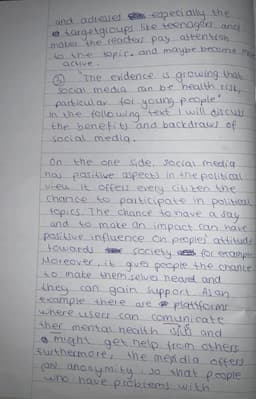 and adresses especially the
targetgroups like teenagers and
makes the reader pay attention
to the topic. and maybe become more
active.
② "The evidence is growing that
social media can be health risk,
particular for young people"
In the following text I will discuss
the benefits and backdraws of
social media.
On the one side, social media
has positive aspects in the political
view. It offers every citizen the
chance to participate in political
topics. The chance to have a say
and to make an impact can have
positive influence on peoples' attitude
towards society for example
Moreover, it gives people the chance
to make themselves heard and
they can gain support. As an
example there are platforms
where users can comunicate
mental health and
might get help from others
Furthermore, the media offers
anonymity, so that people
who have problems with